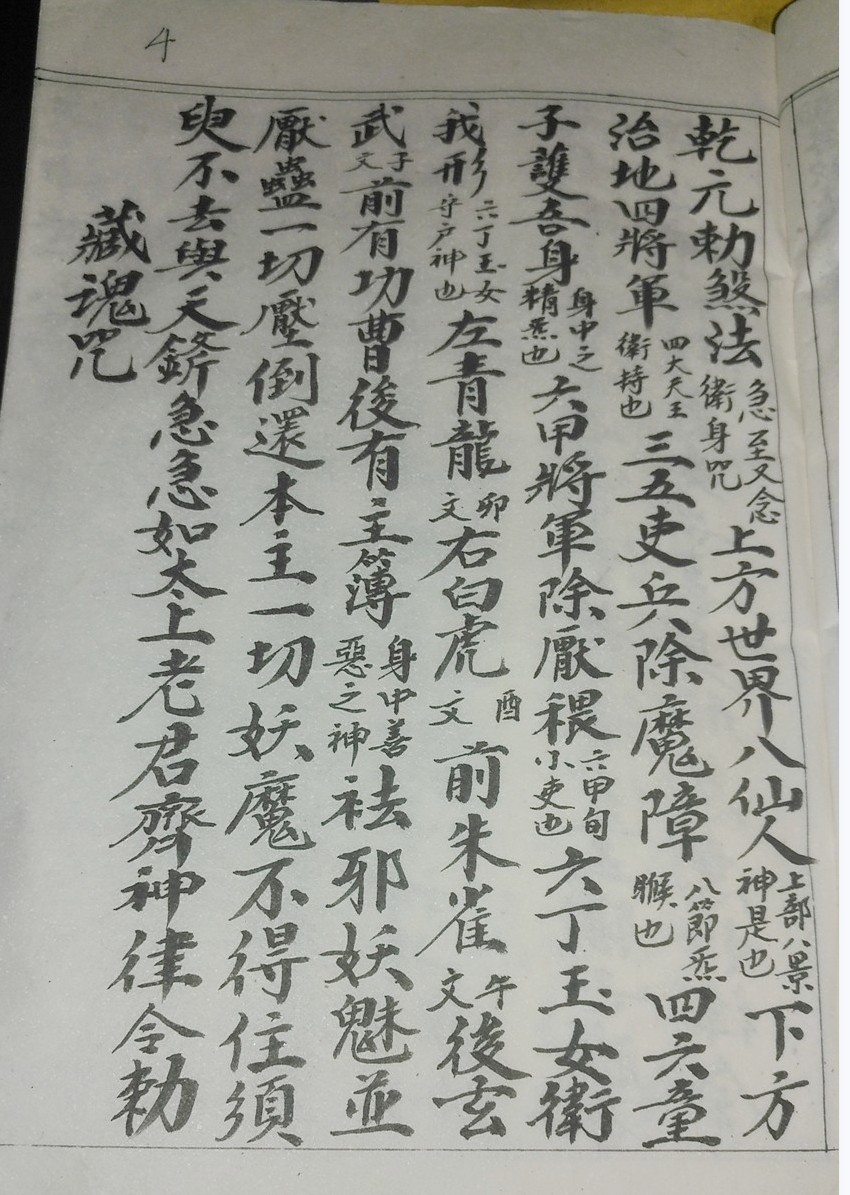 4
乾元勅煞法 急至又念衛身咒 上方世界八仙人 上部八景神是也 下方
治地四將軍 四大天王衛持也 三五吏兵除魔障 八節炁也 四六童
子護吾身 身中之精炁也 六甲將軍除厭穢 六甲旬小吏也 六丁玉女衛
我形 六丁玉女守户神也 左青龍 卯文 右白虎 酉文 前朱雀 午文 後玄
武 子文 前有功曹後有主簿 身中善惡之神 祛邪妖魅並
厭蠱一切壓倒還本主一切妖魔不得住須
臾不去與天斬急急如太上老君齊神律令勅
藏魂咒